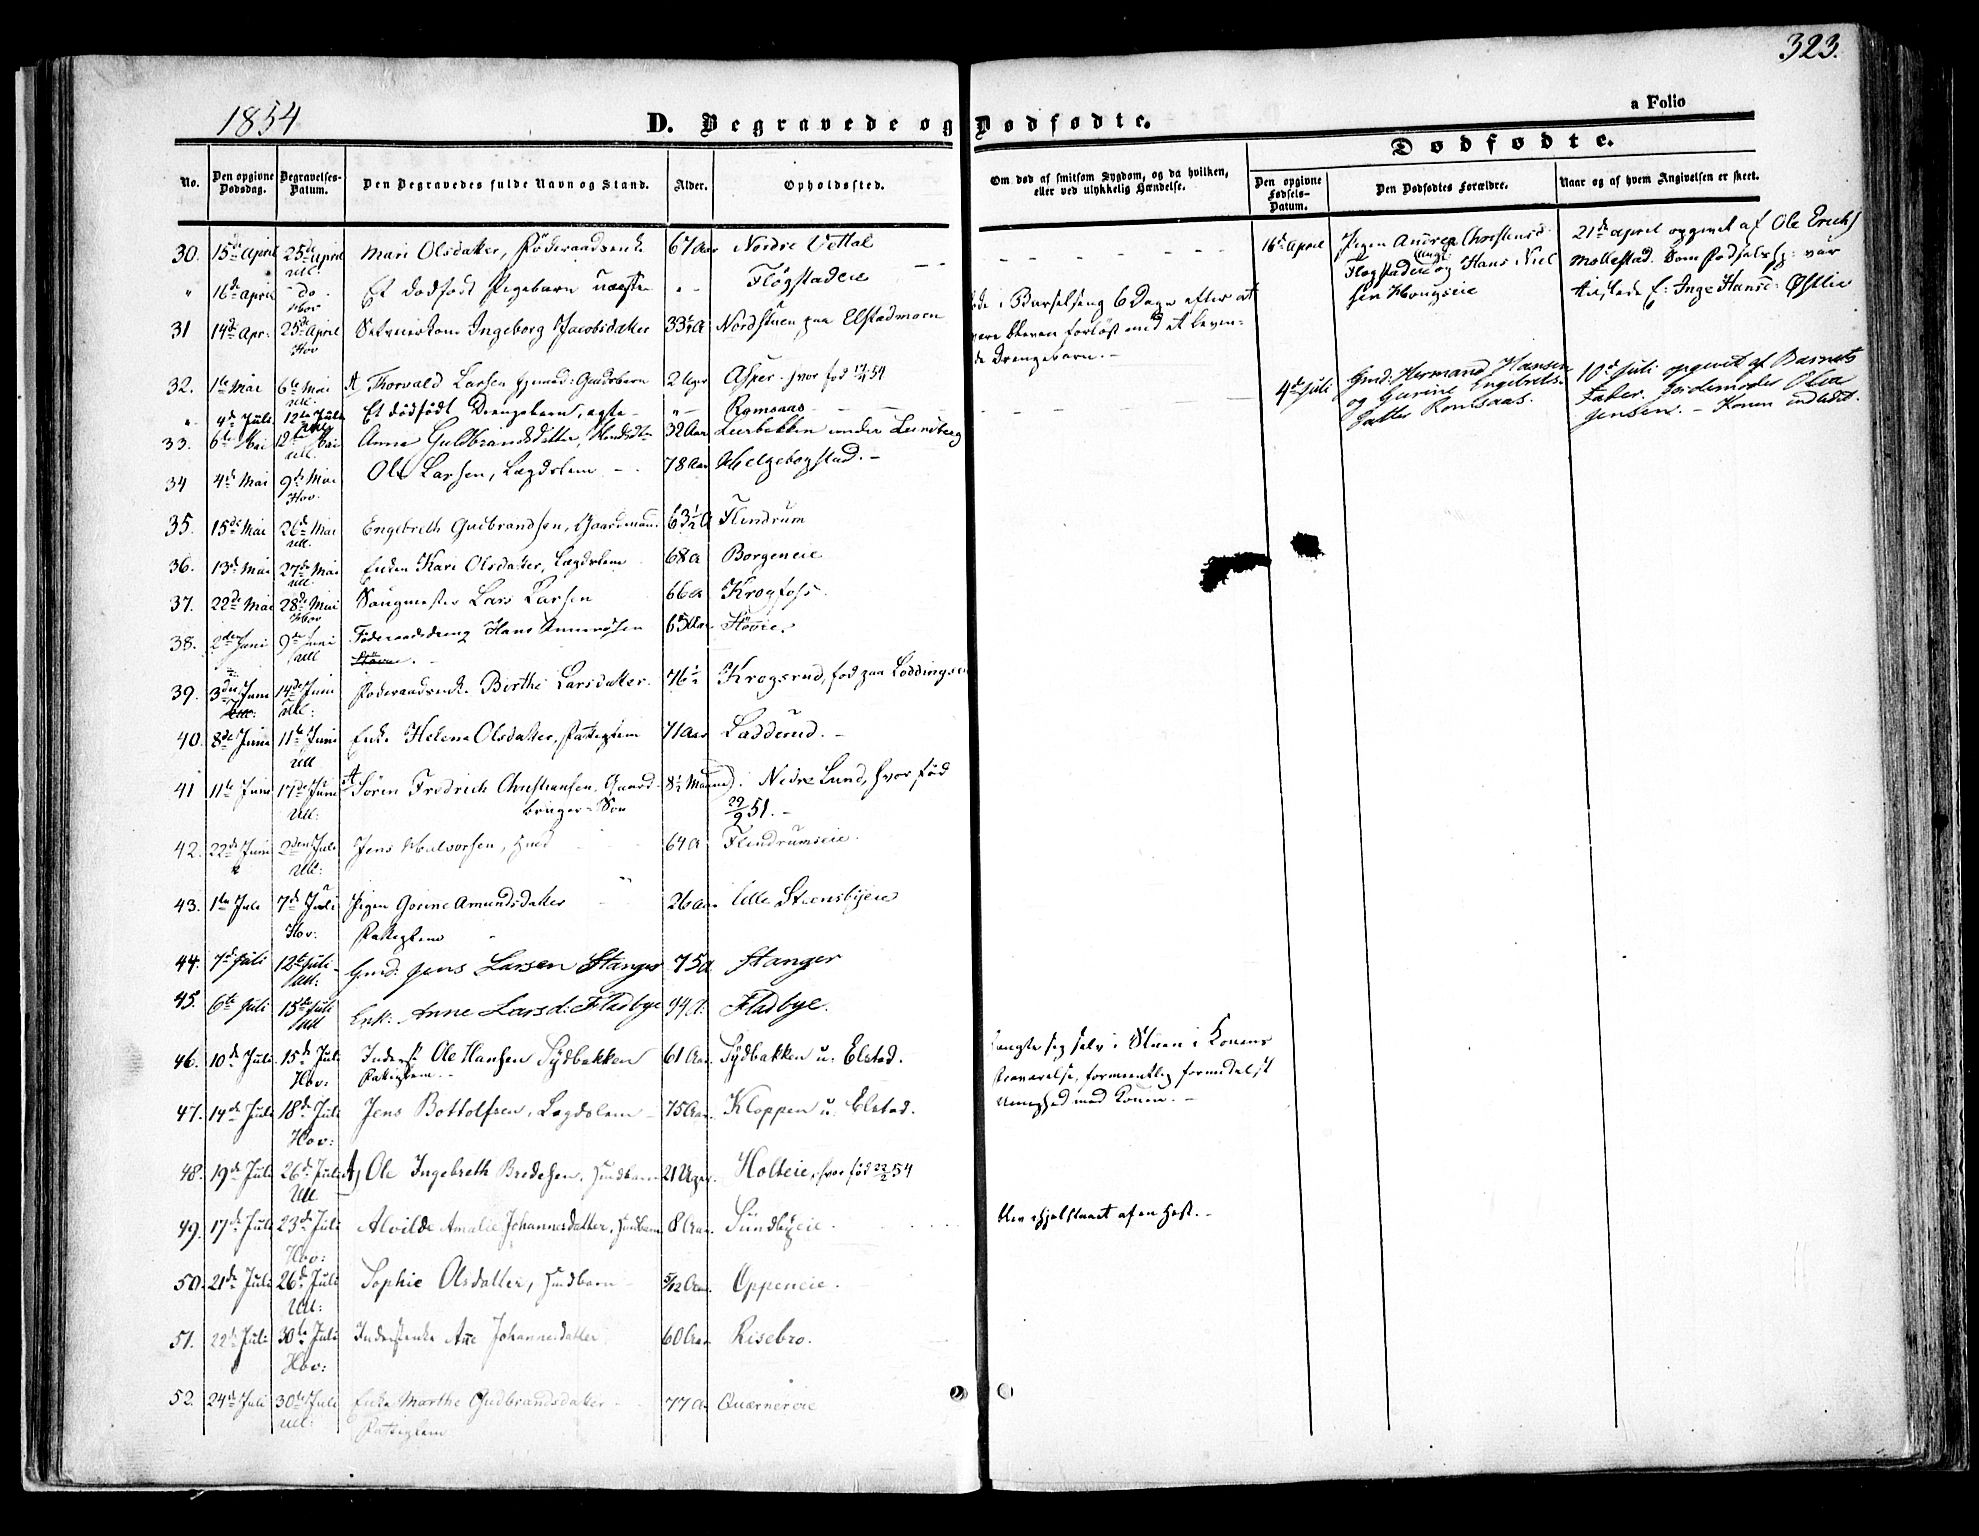 323.
a Folio
1854
D. Begravede og Dødfødte.
Dødfødte.
No.
Den opgivne Dødsdag.
Begravelses-Datum.
Den Begravedes fulde Navn og Stand.
Alder.
Opholdssted.
Om død af smitsom Sygdom, og da hvilken, eller ved ulykkelig Hændelse.
Den opgivne Fødsels-Datum.
Den Dødfødtes Forældre.
Naar og af hvem Angivelsen er skeet.
30. 15de April 25de April Mari Olsdatter, Føderaadsenke 67 Aar Nordre Vettal
Ull.
" 16de April do Et dødfødt Pigebarn uægte " Fløgstadeie 16de April Pigen Andrea Christensd. Flogstadeie og Hans Nielsen Hougseie 21de April opgivet af Ole Erichs Mollestad. Som Fødselshj: var tilstede E: Inge Hansd: Østlie
31 14de Apr: 25de April Selveierkone Ingeborg Jacobsdatter 33½ A Nordstuen paa Elstadmoen
Hov
Døde i Barselseng 6 Dage efter at være bleven forløst med et levende Drengebarn. -
32. 1te Mai 6te Mai A Thorvald Larsen Gaardbarn 2 Uger Asper. hvor fød 17/4 54
Ull.
" 4de Juli 12te Juli Et dødfødt Drengebarn, ægte " Romsaas 4de Juli Gmd: Hermand Hansen og Gurine Engebretsdatter Romsaas. 10de Juli opgivet af Barnets Fader. Jordemoder Olea Jensen. - Konen indledet.
33. 6te Mai 12te Mai Anne Guldbrandsdatter, 32 Aar Leerbekken under Lundberg
Ull.
34 4de Mai 9de Mai Ole Larsen, Lægdslem 78 Aar Helgebogstad. -
Hov.
35. 15de Mai 26de Mai Engebreth Gudbrandsen, Gaardmand 63½ A Flendrum
Ull.
36. 13de Mai 27de Mai Enken Kari Olsdatter, Lægdslem 68 A Borgeneie
Ull
37. 22de Mai 28de Mai Saugmester Lars Larsen 66 A Krogfoss.
Hov
38. 2den Juni 9de Juni Føderaadsdreng Hans Amundsen 65 Aar Høvie.
Ull
39. 3die Juni 14de Juni Føderaadsenke Birthe Larsdatter. 76½ Krogsrud, fød paa Loddingseie
Ull:
40. 8de Juni 11te Juni Enke Helene Olsdatter, Fattiglem 71 Aar Ladderud. -
Ull
41 11te Juni 17de Juni A Søren Fredrich Christiansen, Gaardbruger-Søn 8½ Maaned. Nedre Lund, hvor fød
Ull: 29/9 51. -
42. 22de Juni 2den Juli Jens Halvorsen, Huusmd 64 A Flendrumseie.
Ull:
43. 1te Juli 7de Juli Pigen Gorine Amundsdatter 26 Aar Lille Steensbyeie
Hov. Fattiglem
44. 7de Juli 12te Juli Gmd: Jens Larsen Stanger 75 A Stanger
Ull:
45. 6te Juli 15te Juli Enk: Anne Larsd: Fladbye 94 A: Fladbye.
Ull
46. 10de Juli 15de Juli Inderst Ole Hansen Sydbakken 61 Aar. Sydbakken u. Elstad.
Hov: Fattiglem. -
Hængte sig selv i Stuen i Konens Fraværelse, formeentlig formedelst Uenighed med Konen. -
47. 14de Juli 18de Juli Jens Bottolfsen, Lægdslem 75 Aar. Kloppen u. Elstad.
Hov:
48. 19de Juli 26de Juli A) Ole Ingebreth Bredesen, Huusbarn 21 Uger. Holteie, hvor fød 22/2 54
Ull
49. 17de Juli 23de Juli Alvilde Amalie Johannesdatter, Huusbarn 8 Aar. Sundbyeie. blev ihjelslaaet af en Hest. -
Hov:
50. 21de Juli 26de Juli Sophie Olsdatter, Huusbarn 5/12 Aar. Oppeneie.
Ull:
51. 22de Juli 30te Juli Inderstenke Ane Johannesdatter 60 Aar Risebro.
Hov:
52. 24de Juli 30te Juli Enke Marthe Gudbrandsdatter 77 A. Quærnereie
Ull: Fattiglem